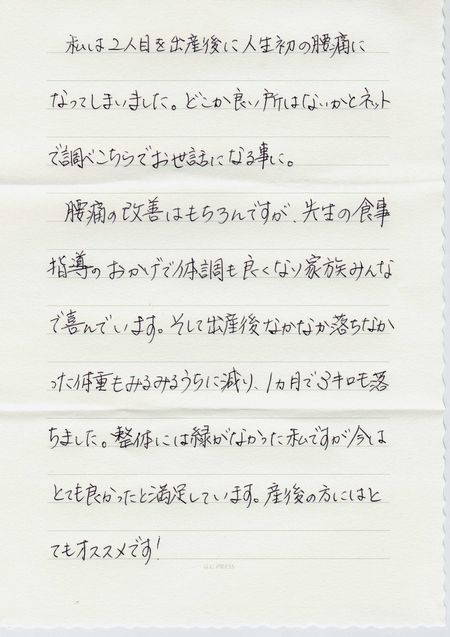 私は2人目を出産後に人生初の腰痛に
なってしまいました。どこか良い所はないかとネット
で調べこちらでお世話になる事に。
腰痛の改善はもちろんですが、先生の食事
指導のおかげで体調も良くなり家族みんな
で喜んでいます。そして出産後なかなか落ちなか
った体重もみるみるうちに減り、1ヵ月で3キロも落
ちました。整体には縁がなかった私ですが今は
とても良かったと満足しています。産後の方にはと
てもオススメです!
G.C. PRESS